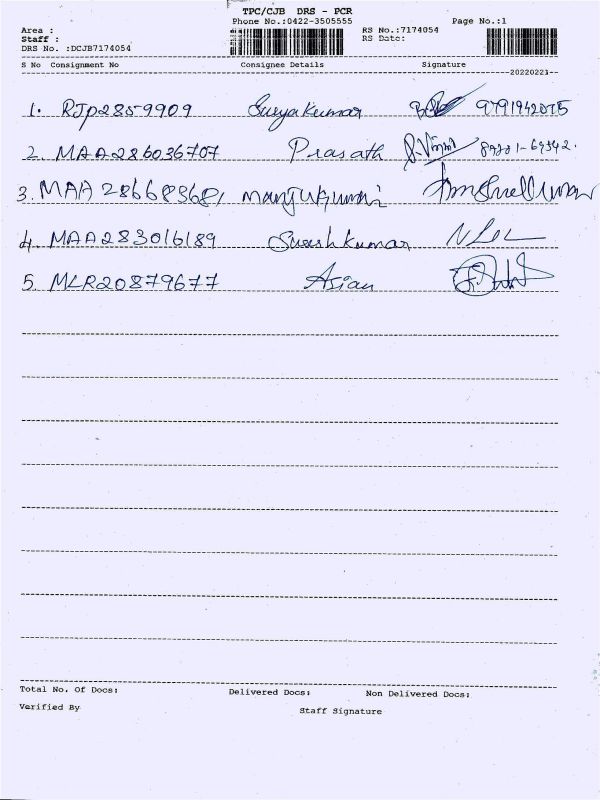 TPC/CJB DRS - PCR
Phone No.:0422-3505555 Page No.:1
Area :
Staff :
DRS No. :DCJB7174054
RS No.:7174054
RS Date:
S No Consignment No Consignee Details Signature
20220221
1. RJP2859909 Suryakumar
2. MAA286036707 Prasath
3. MAA 286689681 Manjukumar
4. MAA283016189 Sureshkumar
5. MLR20879677 Asian
Total No. Of Docs: Delivered Docs: Non Delivered Docs:
Verified By Staff Signature